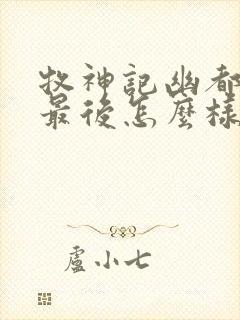 牧神記幽都
最後怎麼樣
盧小七